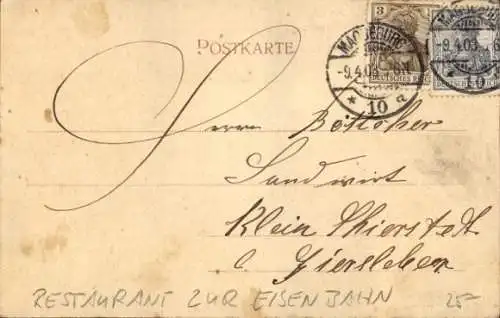 POSTKARTE
3
DEUTSCHES REICH
MAGDEBURG
-9.4.03
* 10 q
MAGDEBURG
-9.4.03
10
Herrn Böttcher
Landwirt
Klein Schierstedt
b. Giersleben
RESTAURANT ZUR EISENBAHN 25-